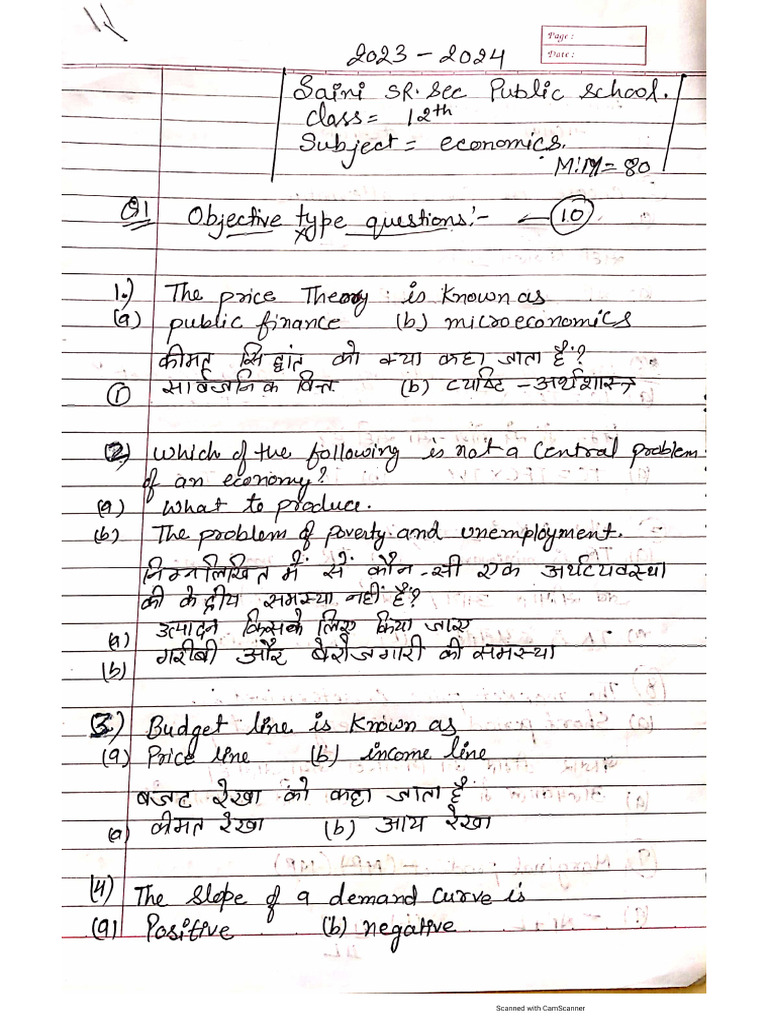 Page :
Date :
2023 - 2024
Saini SR. Sec Public School.
Class = 12th
Subject = economics.
M:M = 80
Q1 Objective type questions:- ← 10
1.) The price Theory is known as
(a) public finance (b) microeconomics
कीमत सिद्धांत को क्या कहा जाता हैं?
① सार्वजनिक वित्त (b) व्यष्टि - अर्थशास्त्र
(2) which of the following is not a Central problem
of an economy?
(a) what to produce.
(b) The problem of poverty and unemployment.
निम्नलिखित में सें कौन-सी एक अर्थव्यवस्था
की केद्रीय समस्या नहीं हैं?
(a) उत्पादन किसके लिए किया जाए
(b) गरीबी और बेरोजगारी की समस्या
(3.) Budget line is known as
(a) Price line (b) income line
बजट रेखा को कहा जाता है
(a) कीमत रेखा (b) आय रेखा
(4) The slope of a demand curve is
(a) Positive (b) negative
Scanned with CamScanner